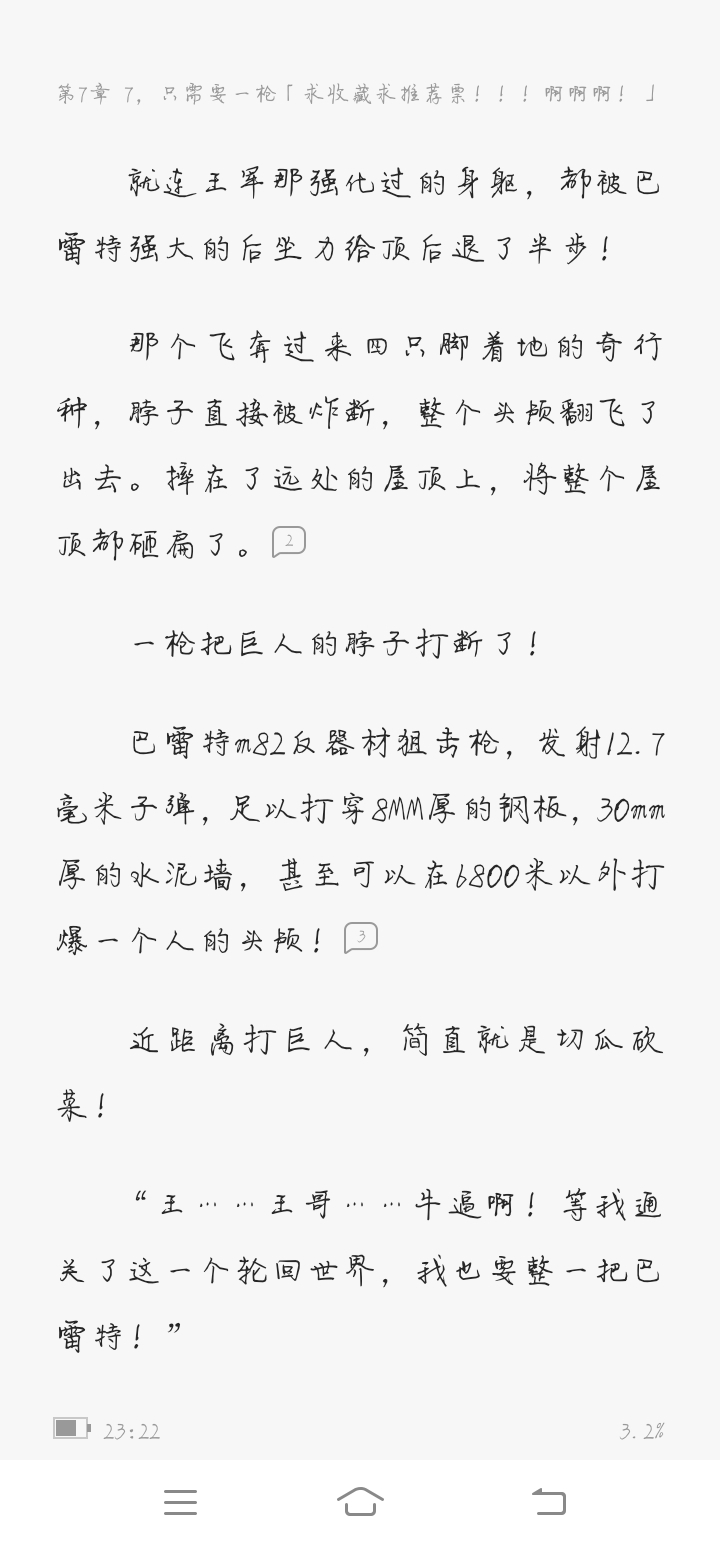 第7章 7，只需要一枪「求收藏求推荐票！！！啊啊啊！」
就连王军那强化过的身躯，都被巴
雷特强大的后坐力给顶后退了半步！
那个飞奔过来四只脚着地的奇行
种，脖子直接被炸断，整个头颅翻飞了
出去。摔在了远处的屋顶上，将整个屋
顶都砸扁了。2
一枪把巨人的脖子打断了！
巴雷特m82反器材狙击枪，发射12.7
毫米子弹，足以打穿8MM厚的钢板，30mm
厚的水泥墙，甚至可以在6800米以外打
爆一个人的头颅！3
近距离打巨人，简直就是切瓜砍
菜！
“王……王哥……牛逼啊！等我通
关了这一个轮回世界，我也要整一把巴
雷特！”
23:22
3.2%